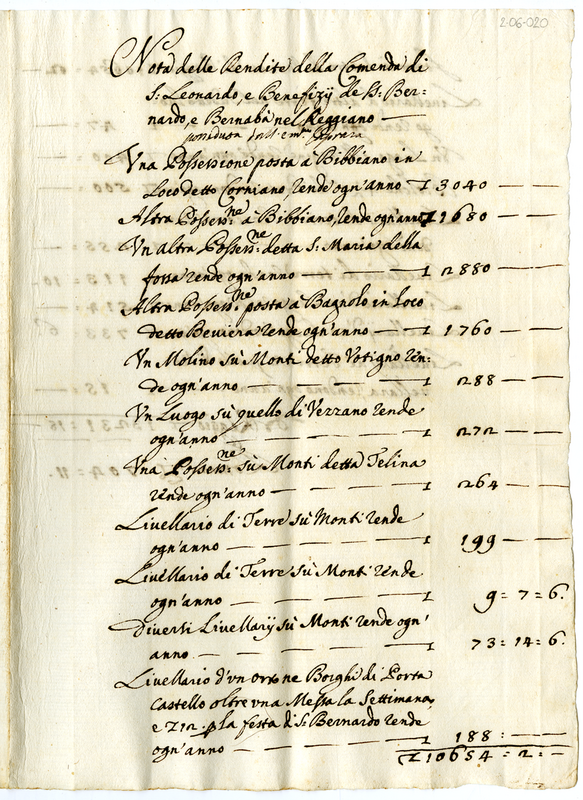 2-06-020
Nota delle Rendite della Comenda di
S: Leonardo, e Benefizij de S: Ber:
nardo, e Bernabà nel Reggiano —
Vna Possessione posta à Bibbiano in
Loco detto Corniano, rende ogn'anno £ 3040 — —
Altra Possess:ne à Bibbiano, rende ogn'anno £ 1680 — —
Vn altra Possess:ne detta S: Maria della
fossa rende ogn'anno — — £ 2880 — —
Altra Possess:ne posta à Bagnolo in Loco
detto Beviera rende ogn'anno — £ 1760 — —
Vn Molino sù Monti detto Votigno ren:
de ogn'anno — — — £ 288 — —
Vn Luogo sù quello di Vezzano rende
ogn'anno — — — £ 272 — —
Vna Possess:ne sù Monti detta Felina
rende ogn'anno — — — £ 264 — —
Livellario di Terre sù Monti rende
ogn'anno — — — £ 199 — —
Livellario di Terre sù Monti rende
ogn'anno — — — £ 9 = 7 = 6.
Diversi Livellarij sù Monti rende ogn'
anno — — — £ 73 = 14 = 6.
Livellario d'vn orto ne Borghi di Porta
Castello oltre vna Messa la Settimana,
e £12. p la festa di S: Bernardo rende
ogn'anno — — — £ 188 : —
£ 10654 = 2 : —